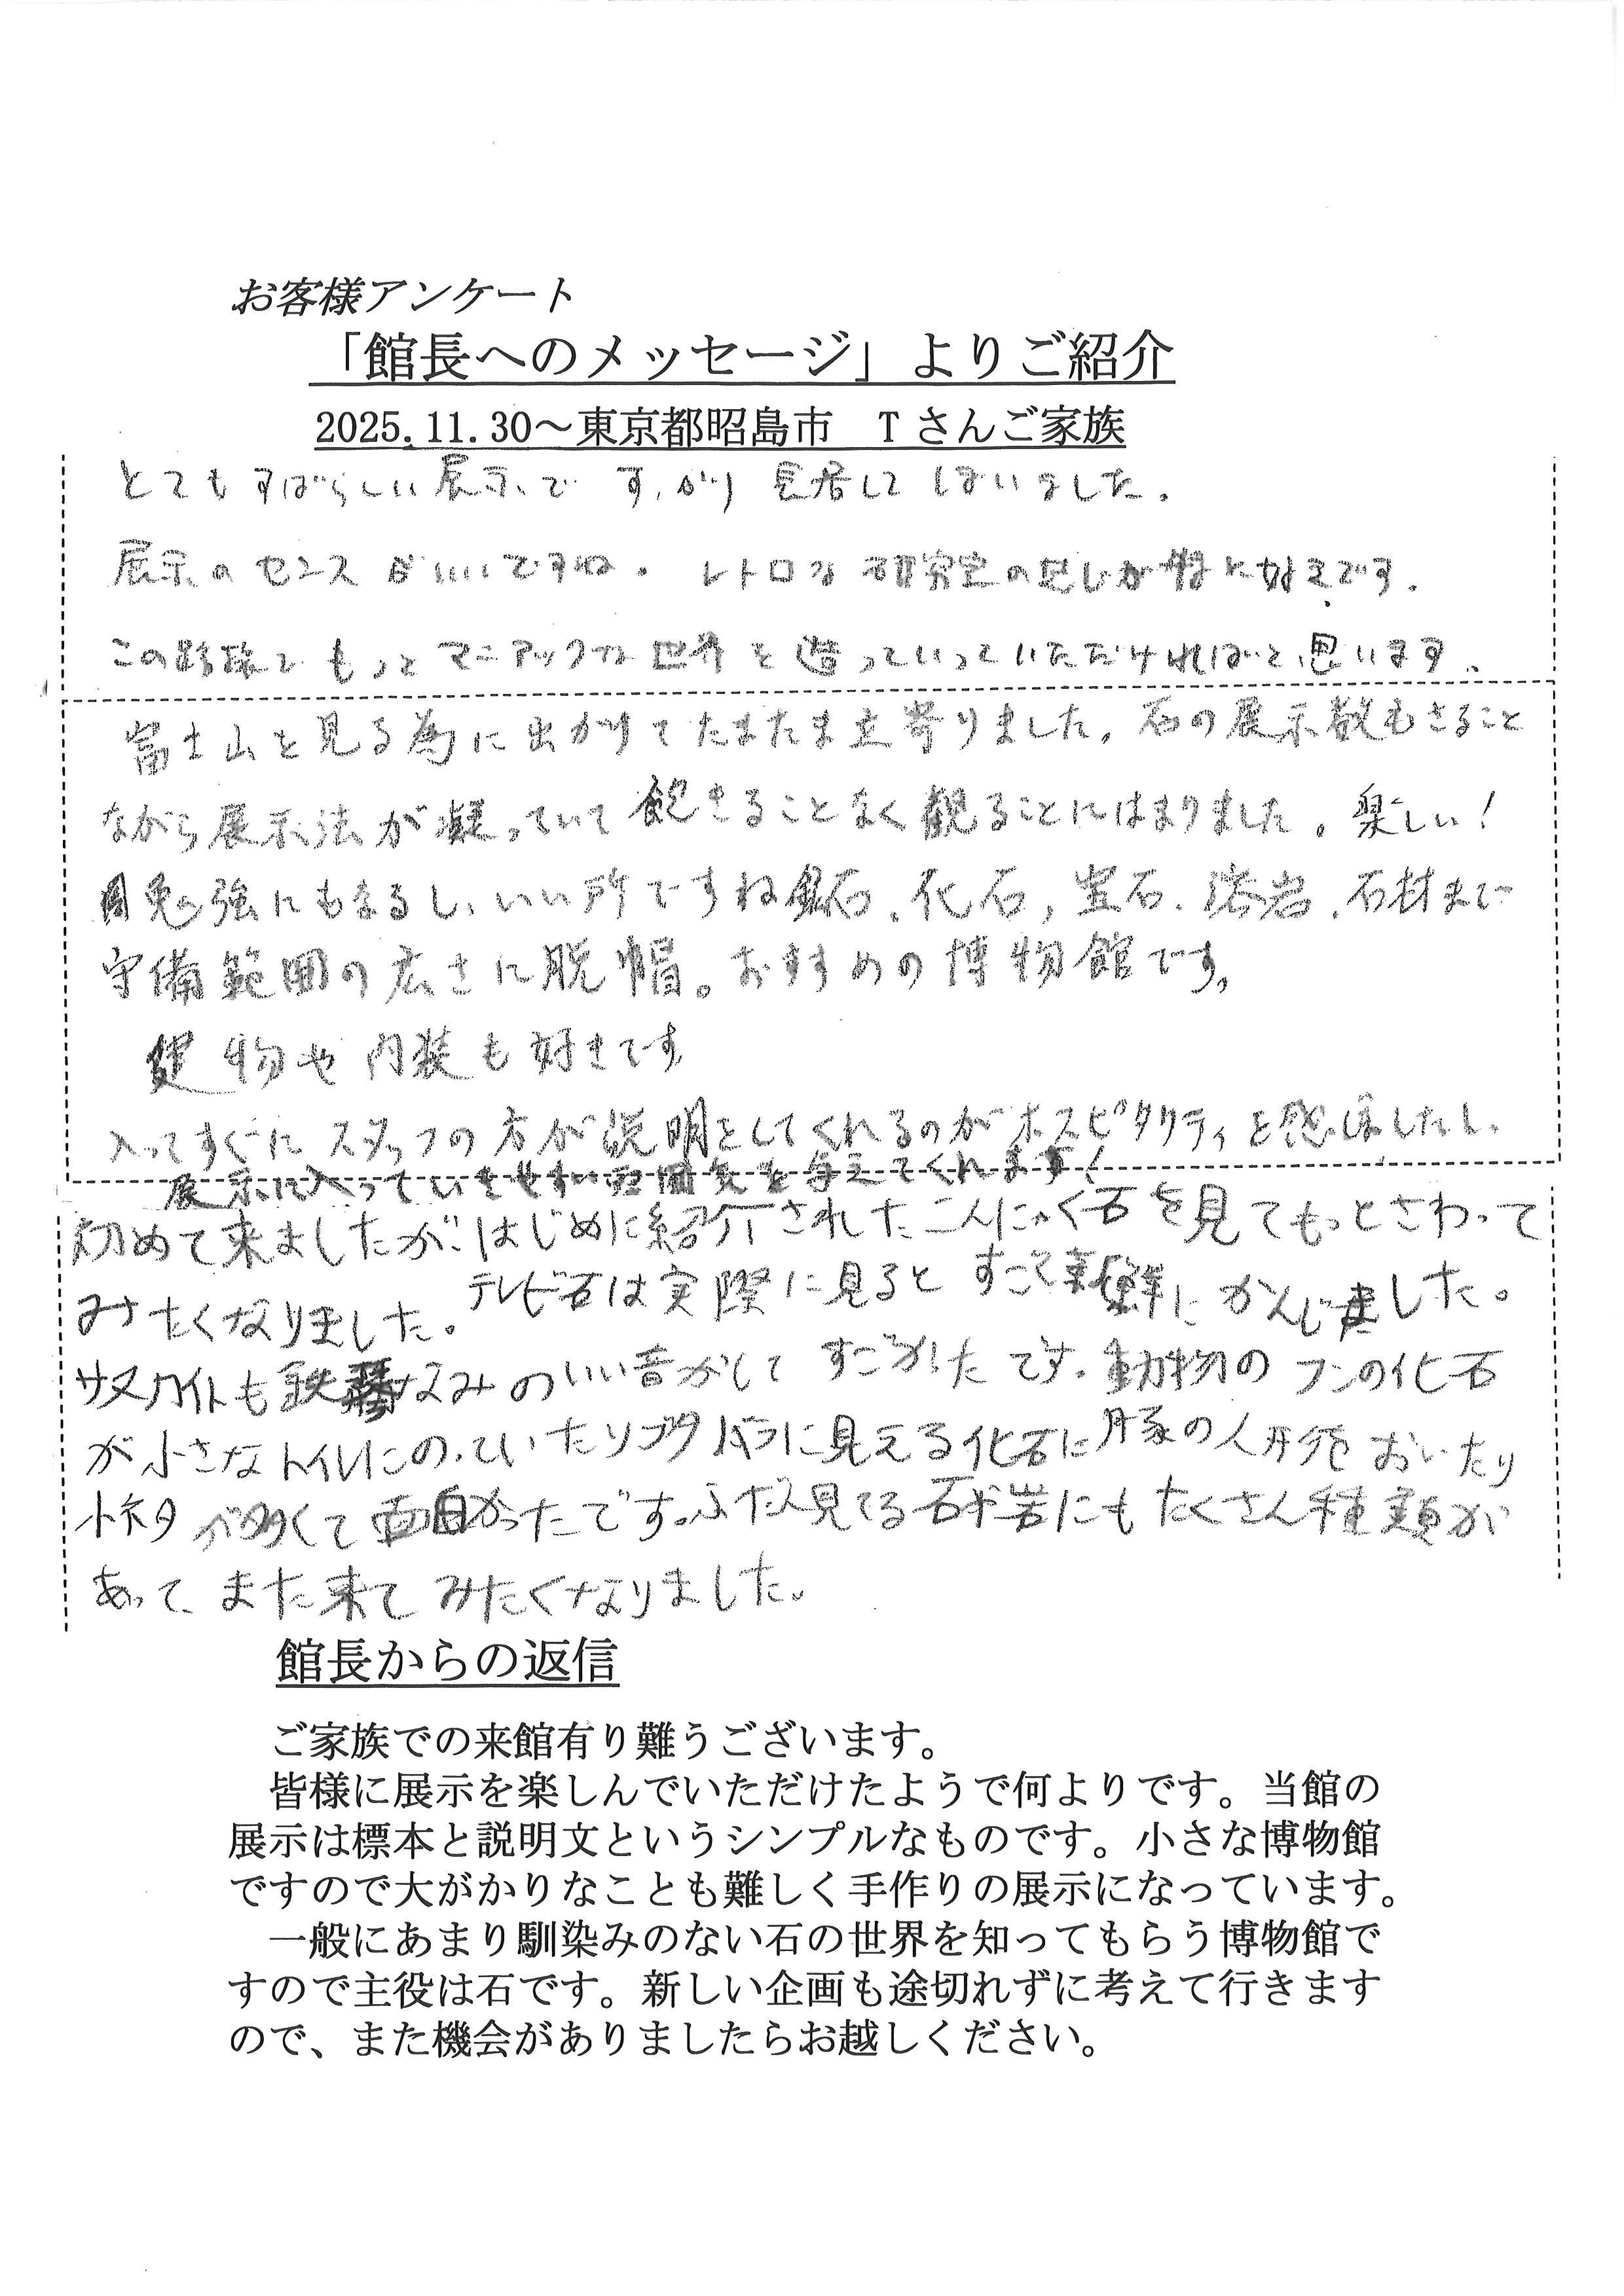 お客様アンケート
「館長へのメッセージ」よりご紹介
2025.11.30～東京都昭島市　Tさんご家族
とてもすばらしい展示ですっかり長居してしまいました。
展示のセンスがいいですね。レトロな研究室の感じが特に好きです。
この路線でもっとマニアックな世界を造っていっていただければと思います。
富士山を見る為に出かけてたまたま立寄りました。石の展示数もさること
ながら展示法が凝っていて飽きることなく観ることにはまりました。楽しい!
勉強にもなるし、いい所ですね鉱石、化石、宝石、溶岩、石材まで
守備範囲の広さに脱帽。おすすめの博物館です。
建物や内装も好きです
入ってすぐにスタッフの方が説明をしてくれるのがホスピタリティを感じましたし、
展示に入っていきやすい雰囲気を与えてくれます!
初めて来ましたが、はじめに紹介されたこんにゃく石を見てもっとさわって
みたくなりました。テレビ石は実際に見るとすごく新鮮にかんじました。
サヌカイトも鉄琴なみのいい音がしてすごかったです。動物のフンの化石
が小さなトイレにのっていたりブタバラに見える化石に豚の人形をおいたり
小ネタが多くて面白かったです。ふだん見てる石や岩にもたくさん種類が
あって、また来てみたくなりました。
館長からの返信
ご家族での来館有り難うございます。
皆様に展示を楽しんでいただけたようで何よりです。当館の
展示は標本と説明文というシンプルなものです。小さな博物館
ですので大がかりなことも難しく手作りの展示になっています。
一般にあまり馴染みのない石の世界を知ってもらう博物館で
すので主役は石です。新しい企画も途切れずに考えて行きます
ので、また機会がありましたらお越しください。